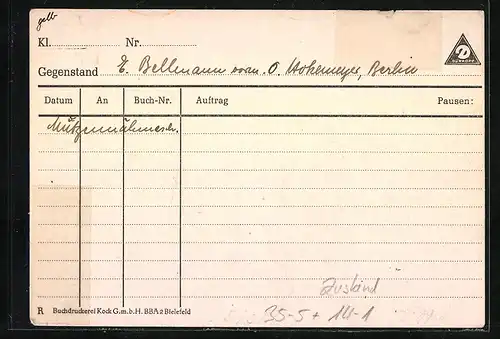 gelb
Kl. Nr.
Gegenstand E. Bellmann vorm. O. Hokemeyer, Berlin
Datum An Buch-Nr. Auftrag Pausen:
Mützennähmasch.
Zustand
35-5+ 14-1
R Buchdruckerei Kock G.m.b.H. BBA2 Bielefeld